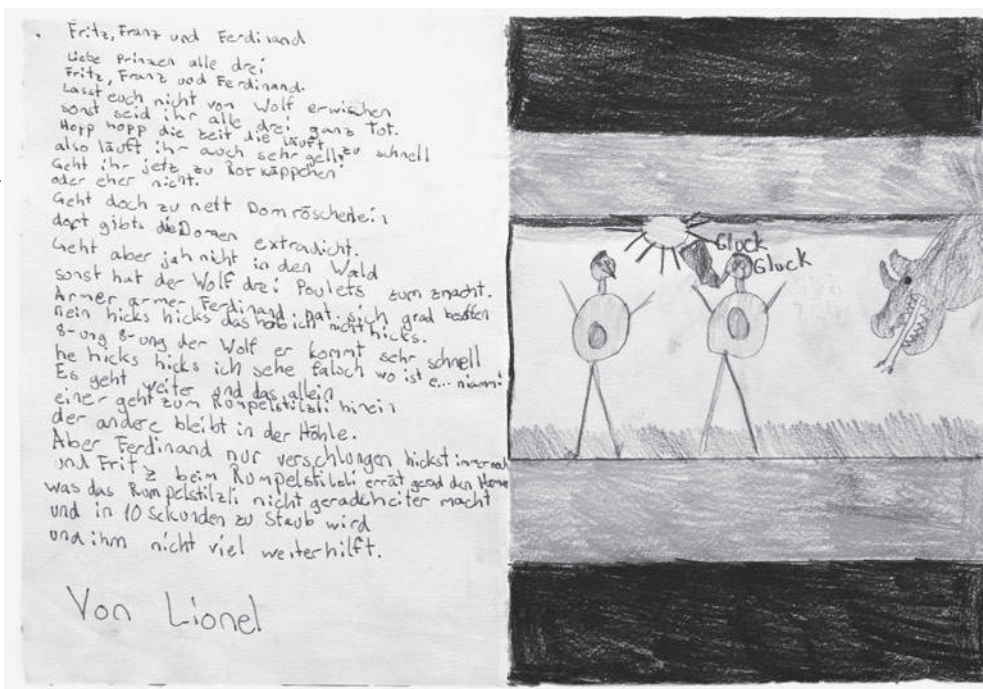 Fritz, Franz und Ferdinand
Liebe Prinzen alle drei
Fritz, Franz und Ferdinand.
Lasst euch nicht von Wolf erwischen
sonst seid ihr alle drei ganz Tot.
Hopp hopp die Zeit die läuft
also läuft ihr auch sehr zu schnell gell,
Geht ihr jetz zu Rotkäppchen
oder eher nicht.
Geht doch zu nett Dornröschelein
dort gibts die Dornen extradicht.
Geht aber jah nicht in den Wald
sonst hat der Wolf drei Poulets zum znacht.
Armer armer Ferdinand hat sich grad
nein hicks hicks das hab ich nicht hicks.
8-ung 8-ung der Wolf er kommt sehr schnell
he hicks hicks ich sehe falsch wo ist e... niamm!
Es geht weiter und das allein
einer geht zum Rumpelstilzli hinein
der andere bleibt in der Höhle.
Aber Ferdinand nur verschlungen hickst immer noch
und Fritz beim Rumpelstilzli errät gerad den
was das Rumpelstilzli nicht geradeheiter macht
und in 10 Sekunden zu Staub wird
und ihm nicht viel weiterhilft.
Von Lionel
Gluck
Gluck